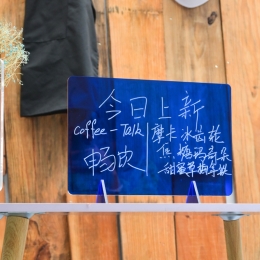 今日上新
Coffee-Talk
畅皮
摩卡冰齿轮
焦糖玛奇朵
甜蜜草梅